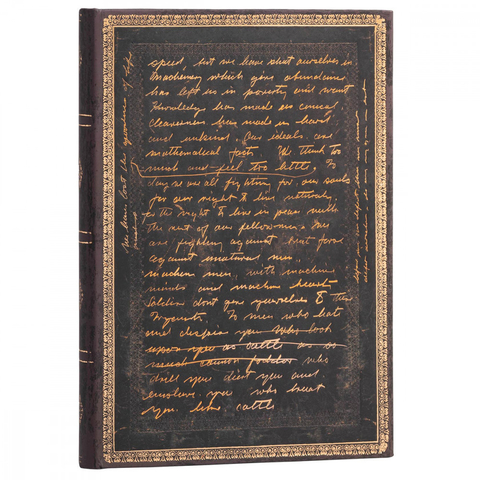 speed, but we have shut ourselves in
Machinery which gives abundance
has left us in poverty and want
Knowledge has made us cynical
cleverness has made us hard
and unkind. Our ideals are
mathematical facts. We think too
much and feel too little. To
day we are all fighting for our souls
for our right to live naturally,
for the right to live in peace with
the rest of our fellowmen. We
are fighting against
against unatural men
machine men, with machine
minds and machine hearts
Soldiers dont give yourselves to these
To men who hate
and despise you who look
upon you as cattle as so
much cannon fodder who
drill you diet you and
enslave you who treat
you like cattle
We have lost the